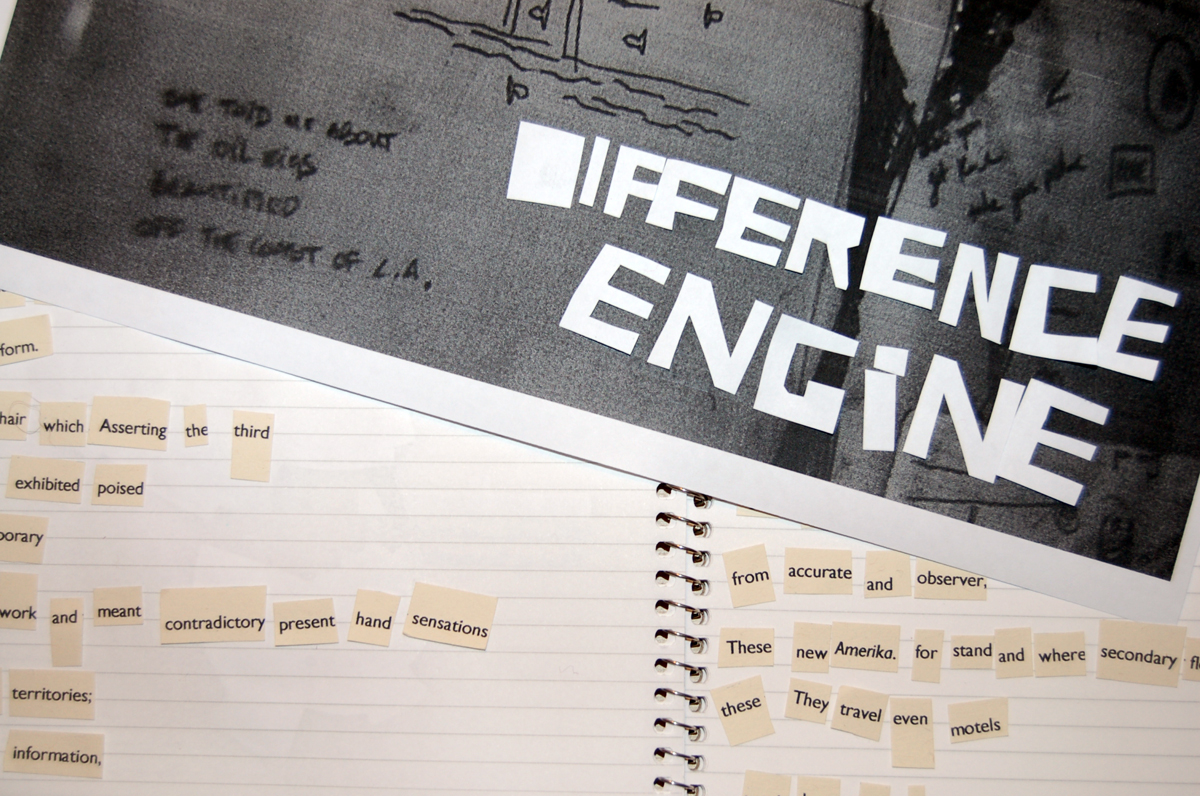 TOLD ME ABOUT
THE OIL RIGS
BEAUTIFIED
OFF THE COAST OF L.A.
DIFFERENCE
ENGINE
form.
hair which Asserting the third
exhibited poised
porary
work and meant contradictory present hand sensations
territories;
information,
from accurate and observer,
These new Amerika. for stand and where secondary
these They travel even motels